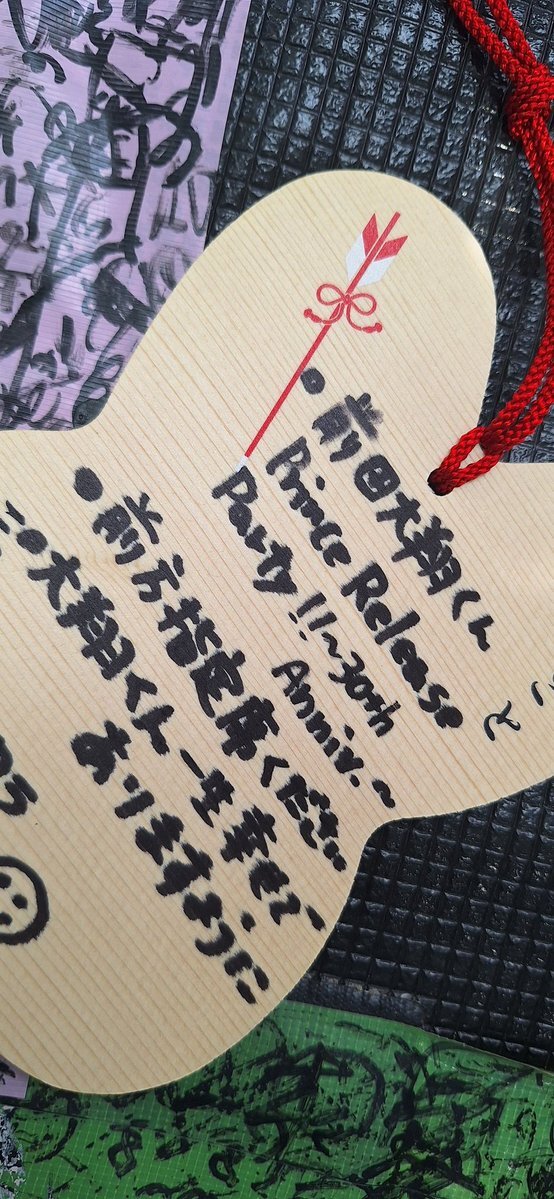 ・前田大翔くん
Prince Release
Party!!~30th
Anniv.~
・前方指定席ください
大翔くん一生幸せで
ありますように